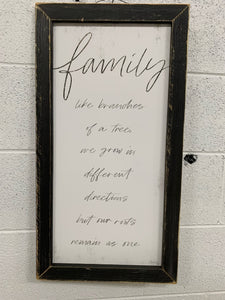 family
like branches
of a tree
we grow in
different
directions
but our roots
remain as one